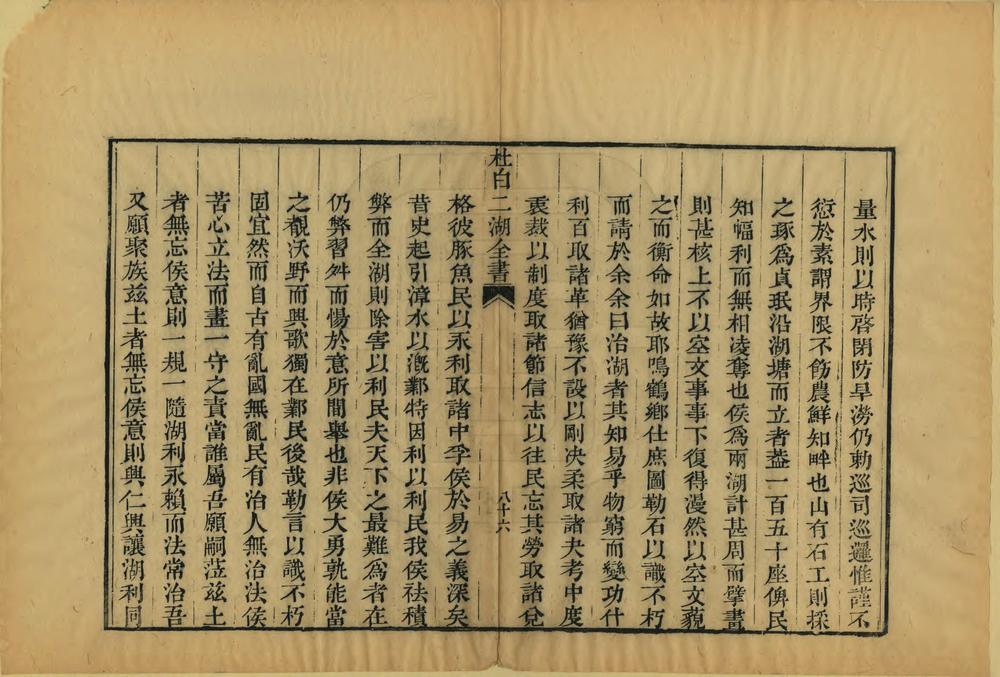 量水則以時啓閉防旱澇仍勅巡司巡邏惟謹不
愆於素謂界限不飭農鮮知畔也山有石工則採
之琢爲貞珉沿湖塘而立者葢一百五十座俾民
知幅利而無相凌奪也侯爲兩湖計甚周而擘畫
則甚核上不以空文事事下復得漫然以空文藐
之而衡命如故耶鳴鶴鄉仕庶圖勒石以識不朽
而請於余余曰治湖者其知易乎物窮而變功什
利百取諸革猶豫不設以剛决柔取諸夬考中度
衷裁以制度取諸節信志以往民忘其勞取諸兌
杜白二湖全書
八十六
格彼豚魚民以永利取諸中孚侯於易之義深矣
昔史起引漳水以漑鄴特因利以利民我侯祛積
弊而全湖則除害以利民夫天下之最難爲者在
仍弊習舛而惕於意所間舉也非侯大勇孰能當
之觀沃野而興歌獨在鄴民後哉勒言以識不朽
固宜然而自古有亂國無亂民有治人無治法侯
苦心立法而畫一守之責當誰屬吾願嗣蒞兹土
者無忘侯意則一規一隨湖利永賴而法常治吾
又願聚族兹土者無忘侯意則興仁興讓湖利同